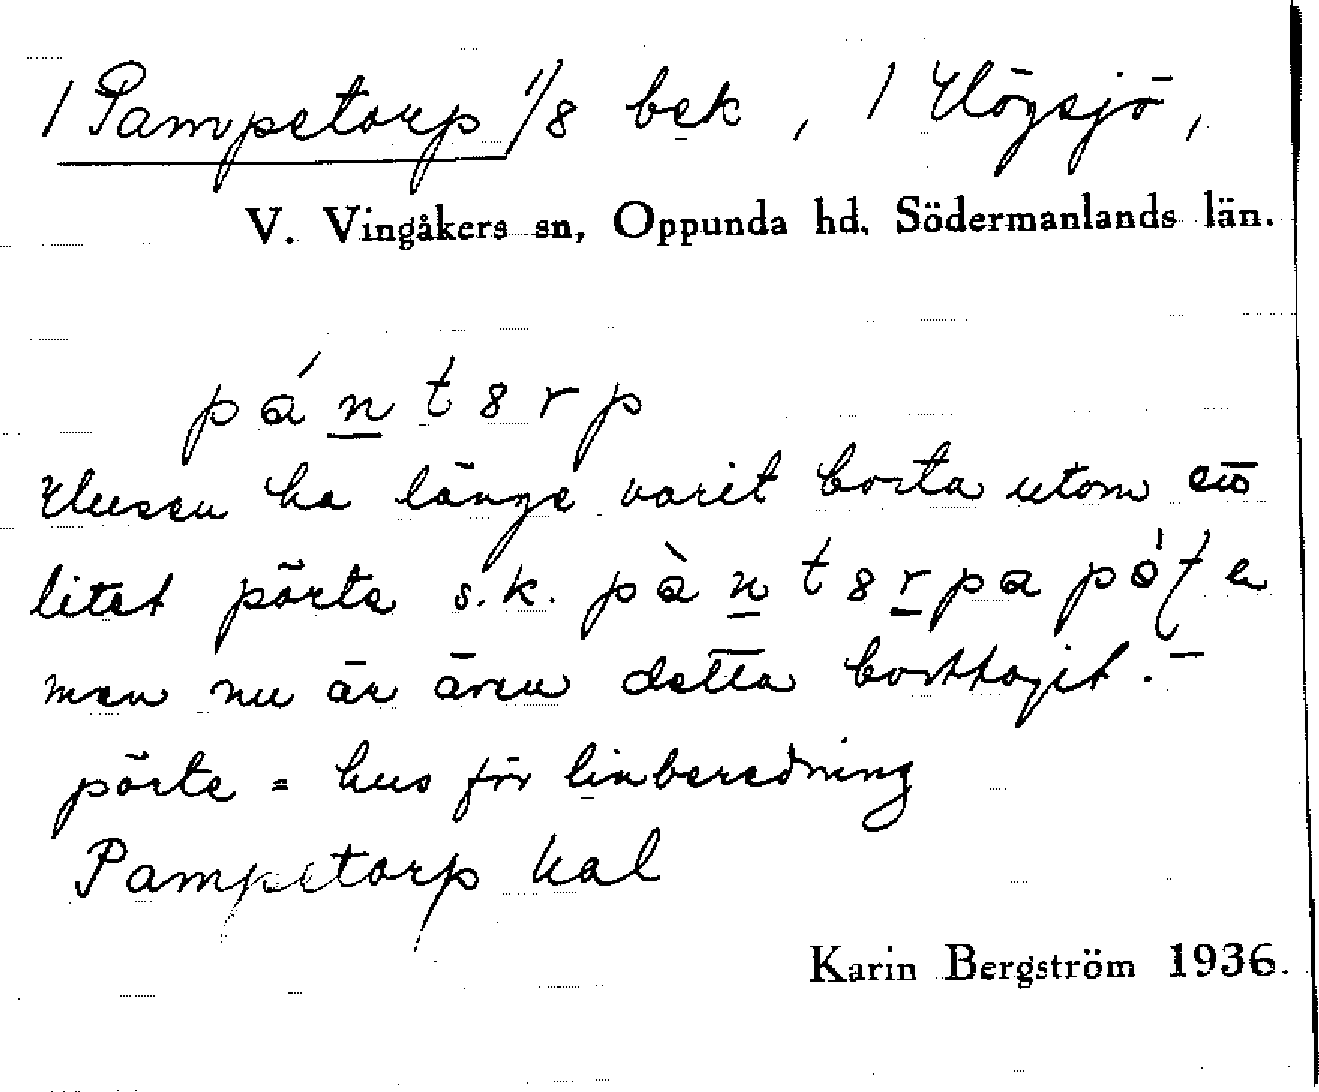 1 Pampetorp 1/8 bek, 1 Högsjö,
V. Vingåkers sn, Oppunda hd, Södermanlands län.
pánt8rp
Husen ha länge varit borta utom ett
litet pörte s.k. pànt8rpa
men nu är även detta borttaget. –
pörte = hus för linberedning
Pampetorp kal
Karin Bergström 1936.